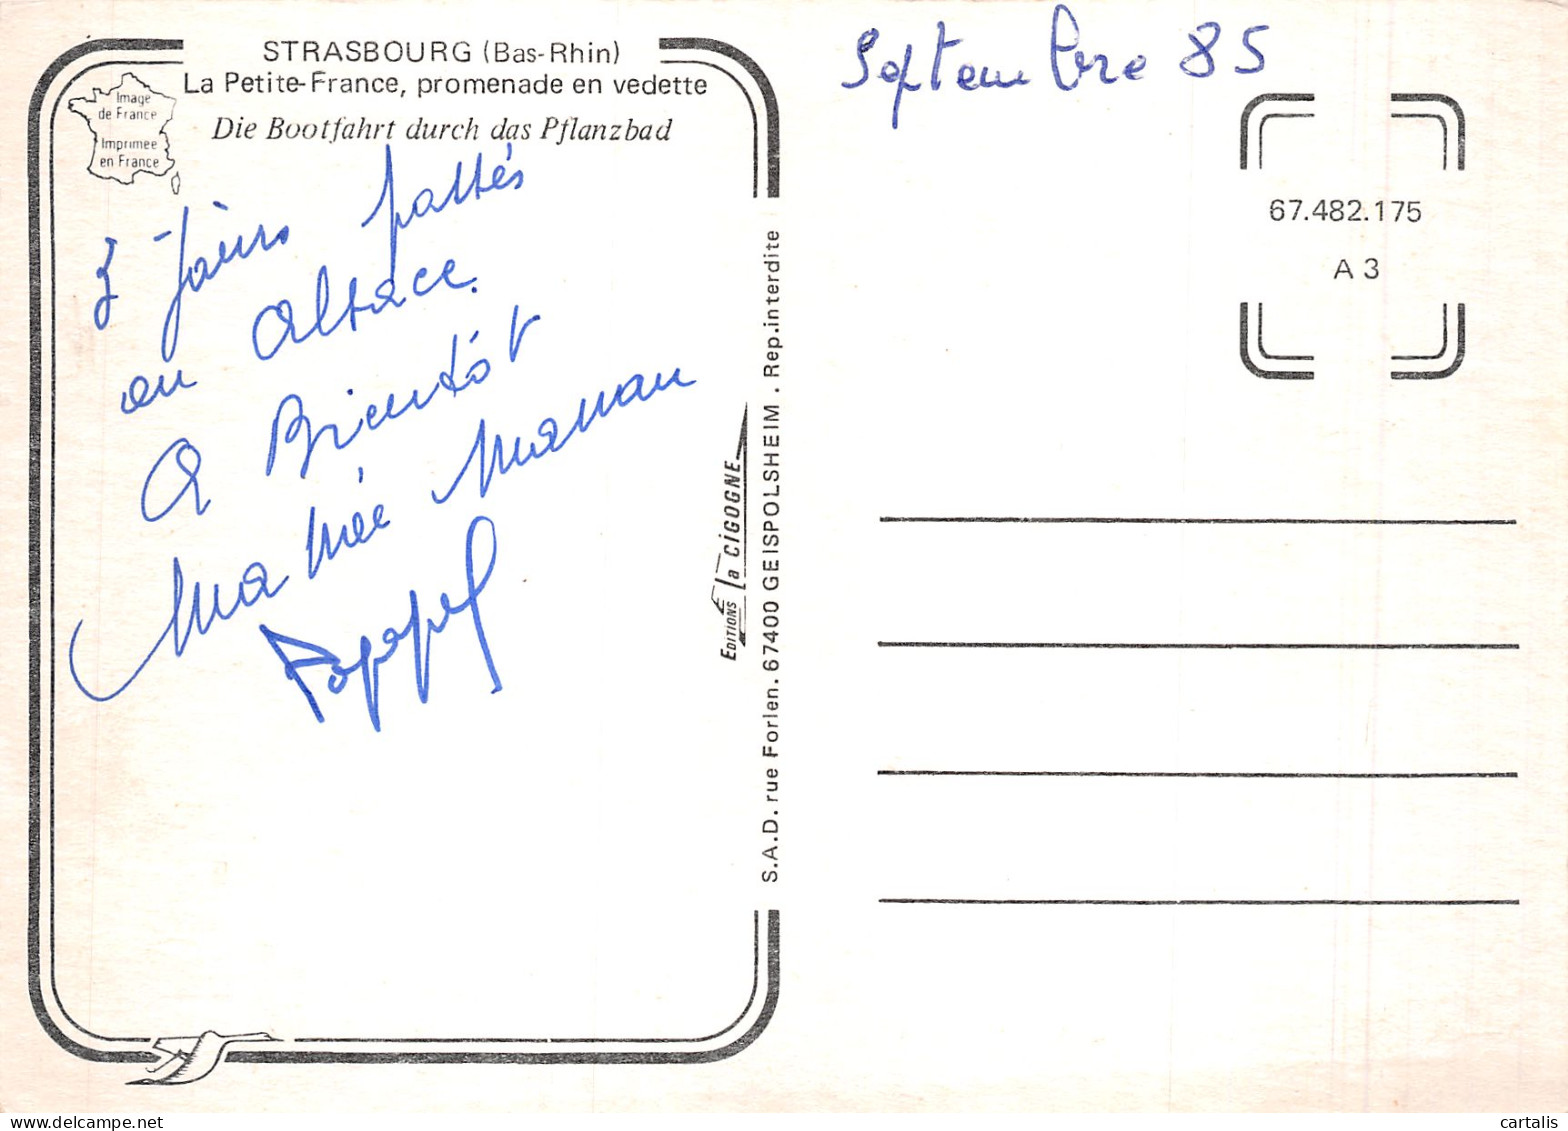 STRASBOURG (Bas-Rhin)
La Petite-France, promenade en vedette
Die Bootfahrt durch das Pflanzbad
Image
de France
Imprimée
en France
3 jours passés
en Alsace.
A Bientôt
Ma Mée Maman
EDITIONS la CIGOGNE
S.A.D. rue Forlen. 67400 GEISPOLSHEIM . Rep.interdite
Septembre 85
67.482.175
A 3
cartalis